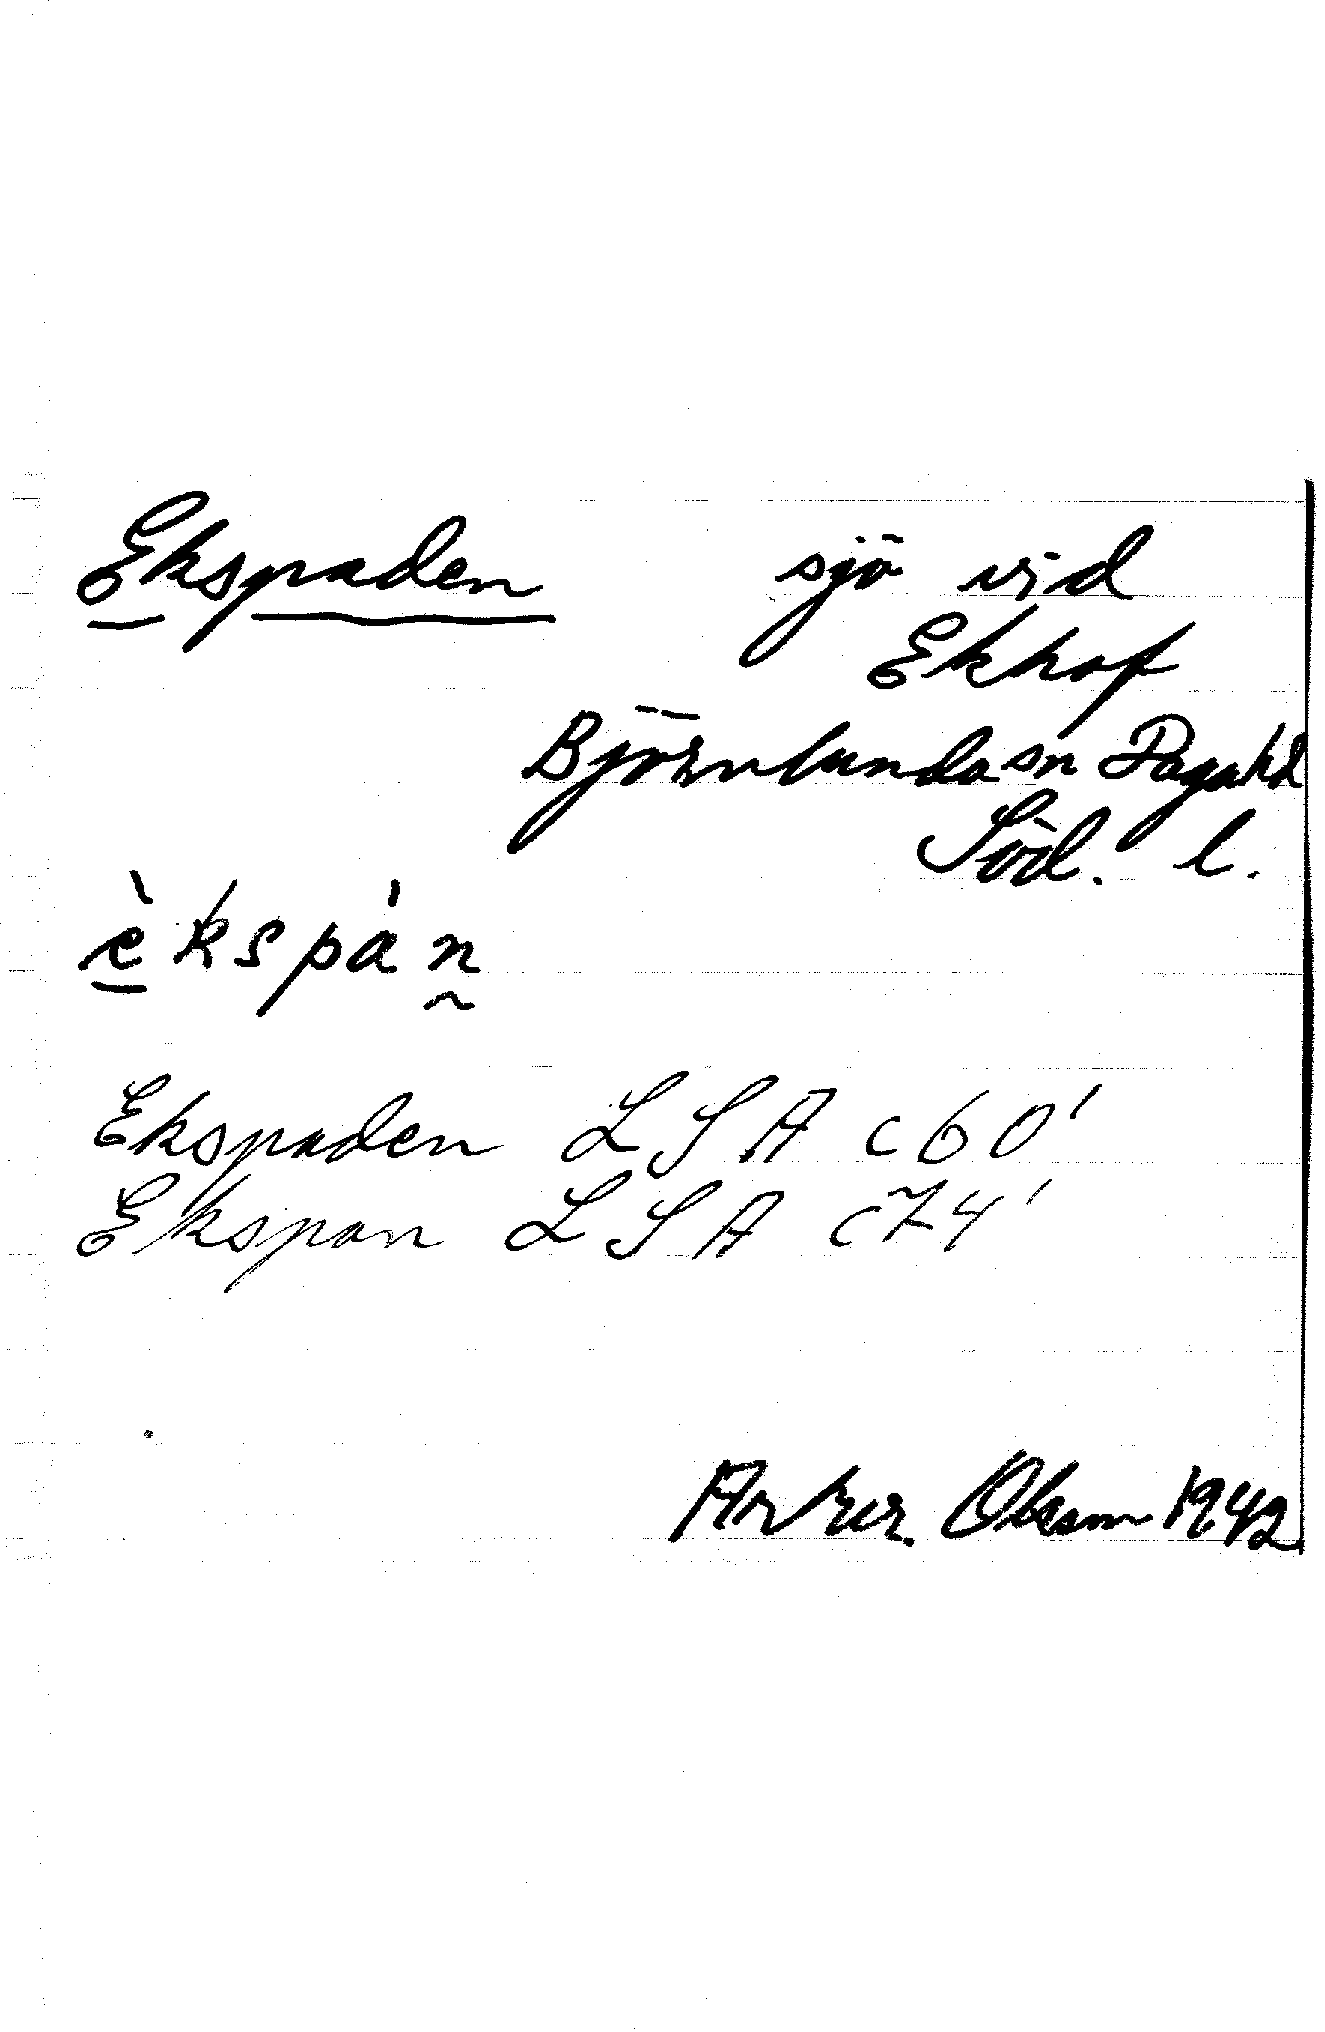 Ekspaden sjö vid
Ekhof
Björnlunda sn Daga hd
Söd. l.
èkspàn
Ekspaden LSA c60'
Ekspan LSA c74'
Olsson 1942